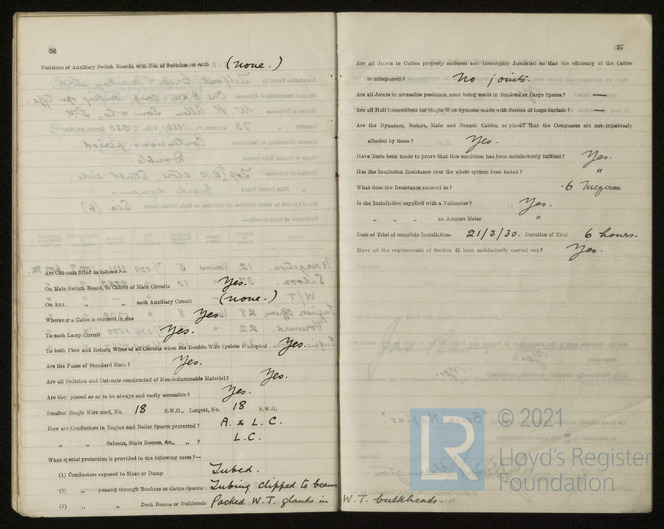 36
Positions of Auxiliary Switch Boards, with Nos. of Switches on each (none.)
Are Cut-outs fitted as follows?—
On Main Switch Board, to Cables of Main Circuits Yes.
On Aux. " " each Auxiliary Circuit (none.)
Wherever a Cable is reduced in size Yes.
To each Lamp Circuit Yes.
To both Flow and Return Wires of all Circuits when the Double Wire System is adopted Yes.
Are the Fuses of Standard Sizes? Yes.
Are all Switches and Cut-outs constructed of Non-inflammable Material? Yes.
Are they placed so as to be always and easily accessible? Yes.
Smallest Single Wire used, No. 18 S.W.G., Largest, No. 18 S.W.G.
How are Conductors in Engine and Boiler Spaces protected? A. & L.C.
" " Saloons, State Rooms, &c., " ? L.C.
What special protection is provided in the following cases?—
(1) Conductors exposed to Heat or Damp Tubed.
(2) " passing through Bunkers or Cargo Spaces Tubing clipped to beams
(3) " " Deck Beams or Bulkheads Packed W.T. glands in W.T. bulkheads.
37
Are all Joints in Cables properly soldered and thoroughly insulated so that the efficiency of the Cables
is unimpaired? No joints.
Are all Joints in accessible positions, none being made in Bunkers or Cargo Spaces? —
Are all Hull Connections for Single-Wire Systems made with Screws of large Surface? —
Are the Dynamos, Motors, Main and Branch Cables, so placed that the Compasses are not injuriously
affected by them? Yes.
Have Tests been made to prove that this condition has been satisfactorily fulfilled? Yes.
Has the Insulation Resistance over the whole system been tested? "
What does the Resistance amount to? .6 Megohms.
Is the Installation supplied with a Voltmeter? Yes.
" " " an Ampere Meter "
Date of Trial of complete Installation 21/3/30. Duration of Trial 6 hours.
Have all the requirements of Section 42 been satisfactorily carried out? Yes.
LR
© 2021
Lloyd's Register
Foundation